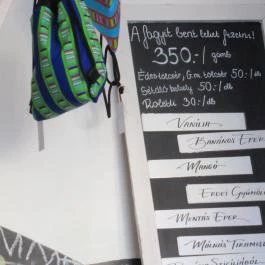 A fagyit bent lehet fizetni!
350.-/ gömb
Édes tölcsér, G.m. tölcsér 50.-/db
Sétáló 50.-/db
Roletti 30.-/db
VANÍLIA
BANÁNOS EPER
MANGÓ
ERDEI
MENTÁS EPER
MÁLNÁS